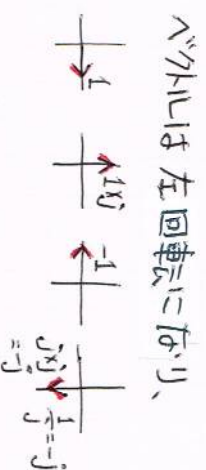 ベクトルは左回転になり、
1
1×j
-1
j×j
=-j
1/j=-j